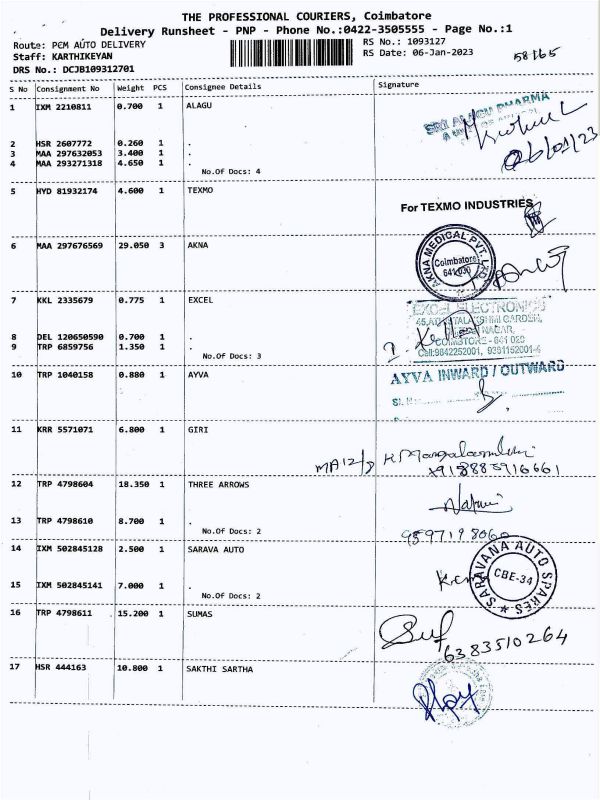 THE PROFESSIONAL COURIERS, Coimbatore
Delivery Runsheet - PNP - Phone No.:0422-3505555 - Page No.:1
Route: PCM AUTO DELIVERY RS No.: 1093127
Staff: KARTHIKEYAN RS Date: 06-Jan-2023 58165
DRS No.: DCJB109312701
S No Consignment No Weight PCS Consignee Details Signature
1 IXM 2210811 0.700 1 ALAGU
SRI ALAGU PHARMA
06/01/23
2 HSR 2607772 0.260 1 .
3 MAA 297632053 3.400 1 .
4 MAA 293271318 4.650 1 .
No.Of Docs: 4
5 HYD 81932174 4.600 1 TEXMO
For TEXMO INDUSTRIES
6 MAA 297676569 29.050 3 AKNA
AKNA MEDICAL PVT. LTD.
Coimbatore
641 030
7 KKL 2335679 0.775 1 EXCEL
EXCEL ELECTRONICS
8 DEL 120650590 0.700 1 .
9 TRP 6859756 1.350 1 .
No.Of Docs: 3
COIMBTORE - 641 020
Cell:9842252001, 9361152001-4
10 TRP 1040158 0.880 1 AYVA
AYVA INWARD / OUTWARD
11 KRR 5571071 6.800 1 GIRI
12 TRP 4798604 18.350 1 THREE ARROWS
13 TRP 4798610 8.700 1 .
No.Of Docs: 2
14 IXM 502845128 2.500 1 SARAVA AUTO
SARAVANA AUTO SPARES
CBE-34
15 IXM 502845141 7.000 1 .
No.Of Docs: 2
16 TRP 4798611 15.200 1 SUMAS
6383510264
17 HSR 444163 10.800 1 SAKTHI SARTHA